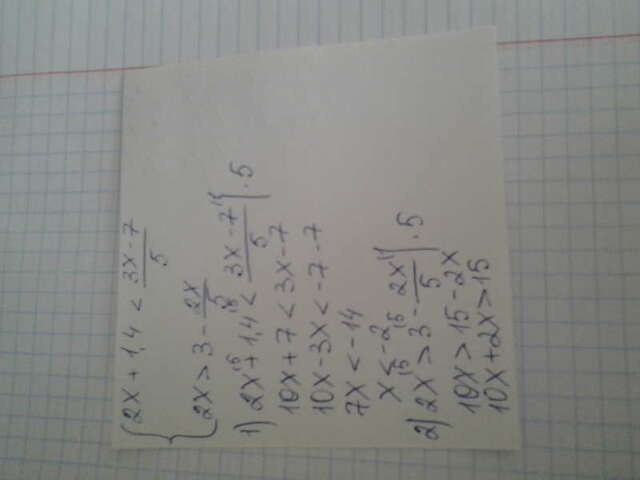 { 2x + 1,4 < (3x-7)/5
2x > 3 - 2x/5
1) 2x + 1,4 < (3x-7)/5 | · 5
10x + 7 < 3x - 7
10x - 3x < -7 - 7
7x < -14
x < -2
2) 2x > 3 - 2x/5 | · 5
10x > 15 - 2x
10x + 2x > 15